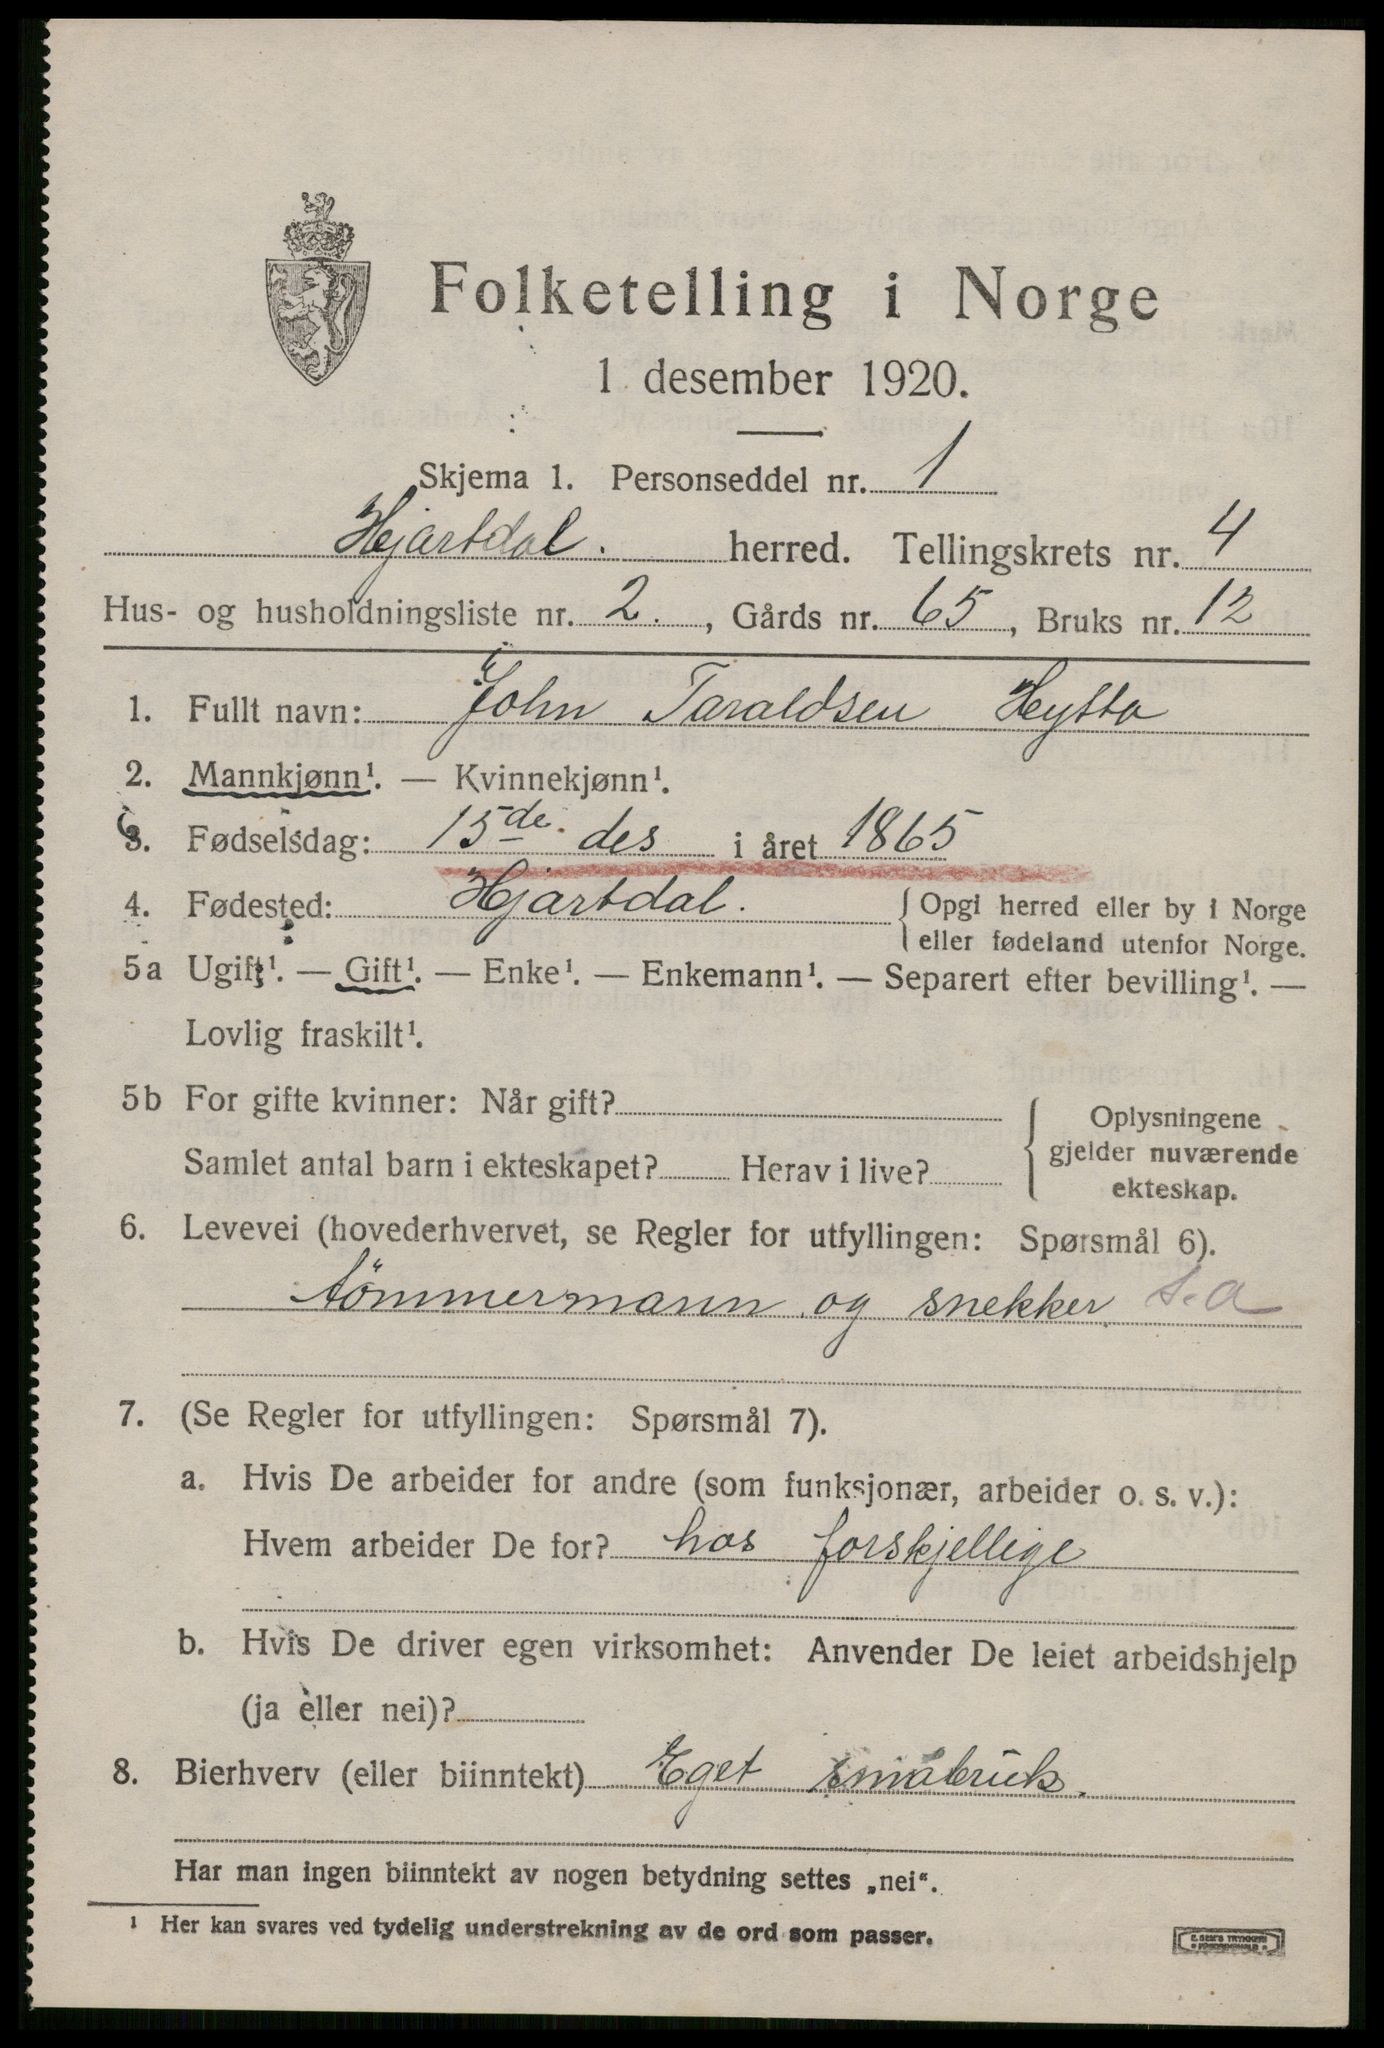 Folketelling i Norge
1 desember 1920.
Skjema 1. Personseddel nr. 1
Hjartdal. herred. Tellingskrets nr. 4
Hus- og husholdningsliste nr. 2. , Gårds nr. 65 , Bruks nr. 12
1. Fullt navn: John Taraldsen Hytta
2. Mannkjønn¹. — Kvinnekjønn¹.
3. Fødselsdag: 15de des i året 1865
4. Fødested: Hjartdal. { Opgi herred eller by i Norge
eller fødeland utenfor Norge.
5a Ugift¹. — Gift¹. — Enke¹. — Enkemann¹. — Separert efter bevilling¹. —
Lovlig fraskilt¹.
5b For gifte kvinner: Når gift?
Samlet antal barn i ekteskapet? Herav i live?
{ Oplysningene
gjelder nuværende
ekteskap.
6. Levevei (hovederhvervet, se Regler for utfyllingen: Spørsmål 6).
tömmermann og snekker s.a
7. (Se Regler for utfyllingen: Spørsmål 7).
a. Hvis De arbeider for andre (som funksjonær, arbeider o. s. v.):
Hvem arbeider De for? hos forskjellige
b. Hvis De driver egen virksomhet: Anvender De leiet arbeidshjelp
(ja eller nei)?
8. Bierhverv (eller biinntekt) Eget småbruk.
Har man ingen biinntekt av nogen betydning settes „nei“.
¹ Her kan svares ved tydelig understrekning av de ord som passer.